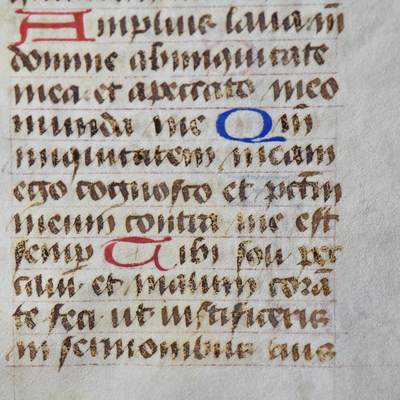 Amplius lava m̄
domine ab iniquitate
mea et a peccato meo
munda me Qm̄
iniquitatem meam
ego cognosco et pctm̄
meum contra me est
semp Tibi soli pec
caui et malum corā
te feci ut iustificeris
in sermonibus tuis